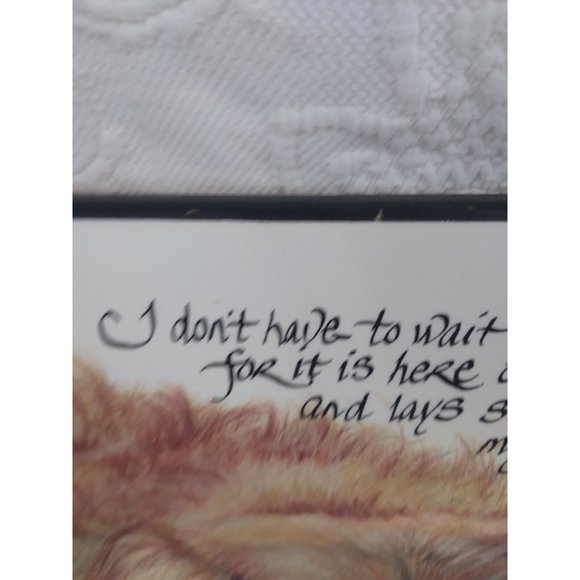 I don't have to wait
for it is here
and lays